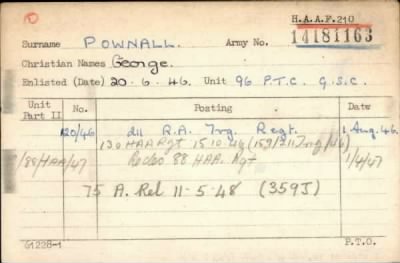 H.A.A.F. 210
Surname POWNALL. Army No. 14181163
Christian Names George.
Enlisted (Date) 20.6.46. Unit 96 P.T.C. G.S.C.
Unit Part II No. Posting Date
120/46 211 R.A. Trg. Regt. 1 Aug. 46.
130 HAA Rgt 15.10.46 (159/211 Trg/46)
/88 HAA/47 Redes 88 HAA. Rgt 1/4/47
75 A. Rel 11-5-48 (359J)
G1228-1 P.T.O.